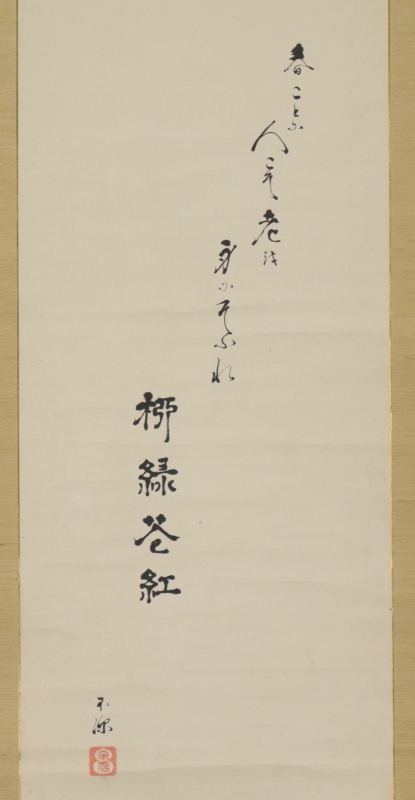 春ことに
人こそ老は
身にそふれ
柳緑花紅
不深